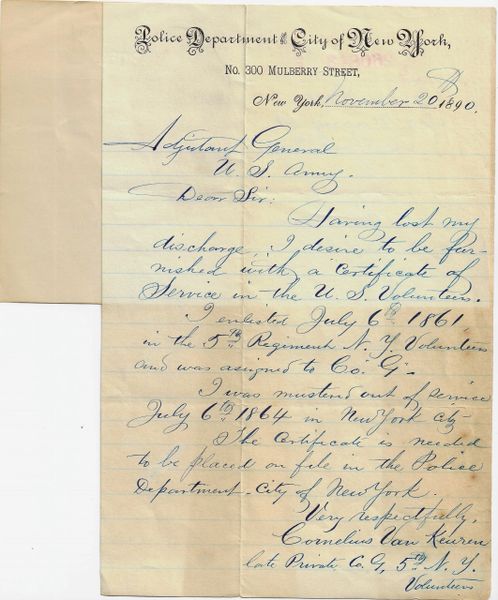 Police Department of the City of New York,
No. 300 Mulberry Street,
New York, November 20th 1890.
Adjutant General
U. S. Army.
Dear Sir:
Having lost my
discharge, I desire to be fur-
nished with a certificate of
Service in the U. S. Volunteers.
I enlisted July 6th 1861
in the 5th Regiment N. Y. Volunteers
and was assigned to Co. G-
I was mustered out of service
July 6th 1864 in New York city-
The certificate is needed
to be placed on file in the Police
Department-City of New York.
Very respectfully,
Cornelius Van Keuren
late Private Co. G, 5th N. Y.
Volunteers